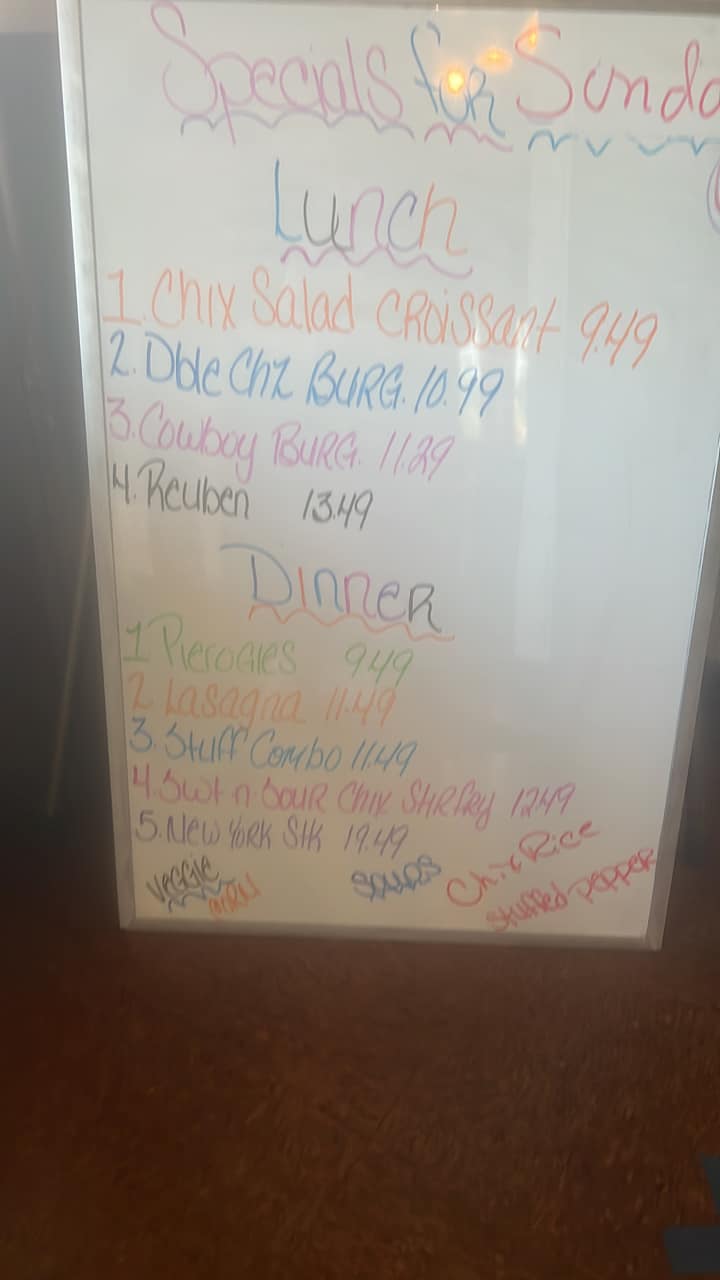 Specials for Sunda
Lunch
1. Chix Salad Croissant 9.49
2. Dble Chz Burg. 10.99
3. Cowboy Burg. 11.29
4. Reuben 13.49
Dinner
1 Pierogies 949
2 Lasagna 11.49
3. Stuff Combo 11.49
4. Swt n Sour Chix StRfry 1249
5. New York Stk 19.49
Veggie
corn
Soups
Chix Rice
Stuffed pepper